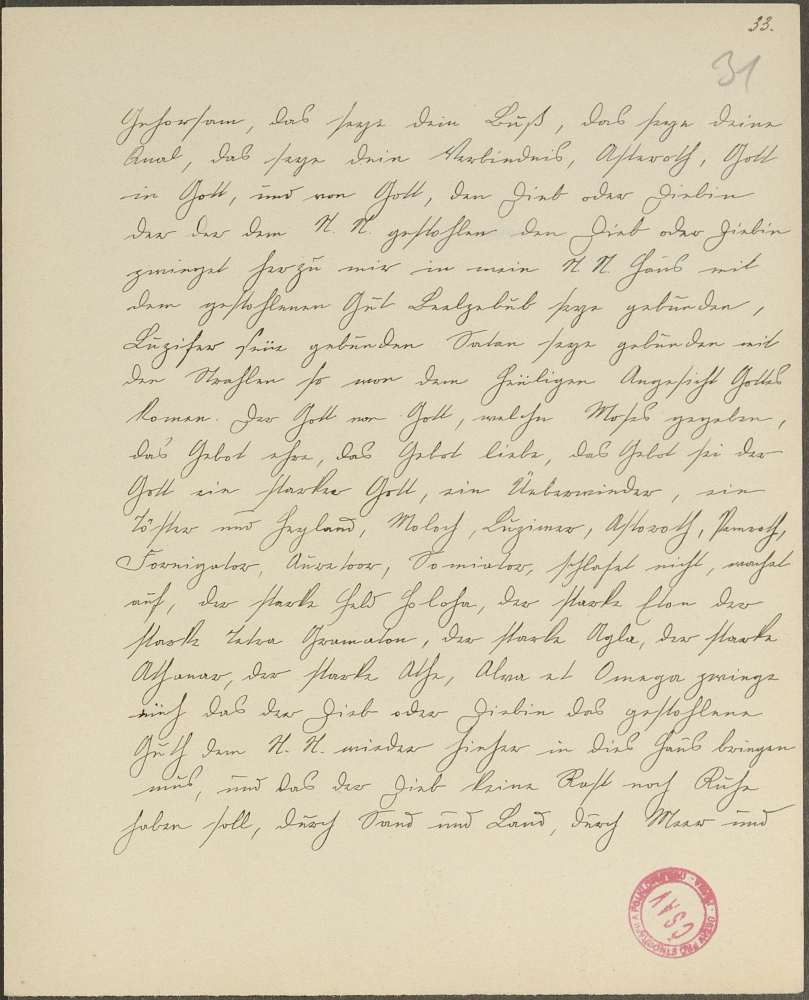 33.
31
Gehorsam, das seye dein Buß, das seye deine
Qual, das seye dein Verbindnis, Asteroth, Gott
in Gott, und von Gott, den Dieb oder Diebin
der der dem N. N. gestohlen den Dieb oder Diebin
zwinget herzu mir in mein N N. Haus mit
dem gestohlenen Gut Beelzebub seye gebunden,
Luzifer seie gebunden Satan seye gebunden mit
den Strahlen so von dem heiligen Angesicht Gottes
komen. Der Gott von Gott, welche Moses gegeben,
das Gebot ehre, das Gebot liebe, das Gebot sei der
Gott ein starker Gott, ein Überwinder, ein
Töster und Heyland, Moloch, Luzimer, Astoroth, Pemeoth,
Fornigator, Auretoor, Somiator, schlafet nicht, wachet
auf, der starke Held Holoha, der starke Eton der
starke Tetra Gramaton, der starke Agla, der starke
Athanar, der starke Athe, Alva et Omega zwinge
euch das der Dieb oder Diebin das gestohlene
Guth dem N. N. wieder hieher in dies Haus bringen
mus, und das der Dieb keine Rast noch Ruhe
haben soll, durch Sand und Land, durch Meer und